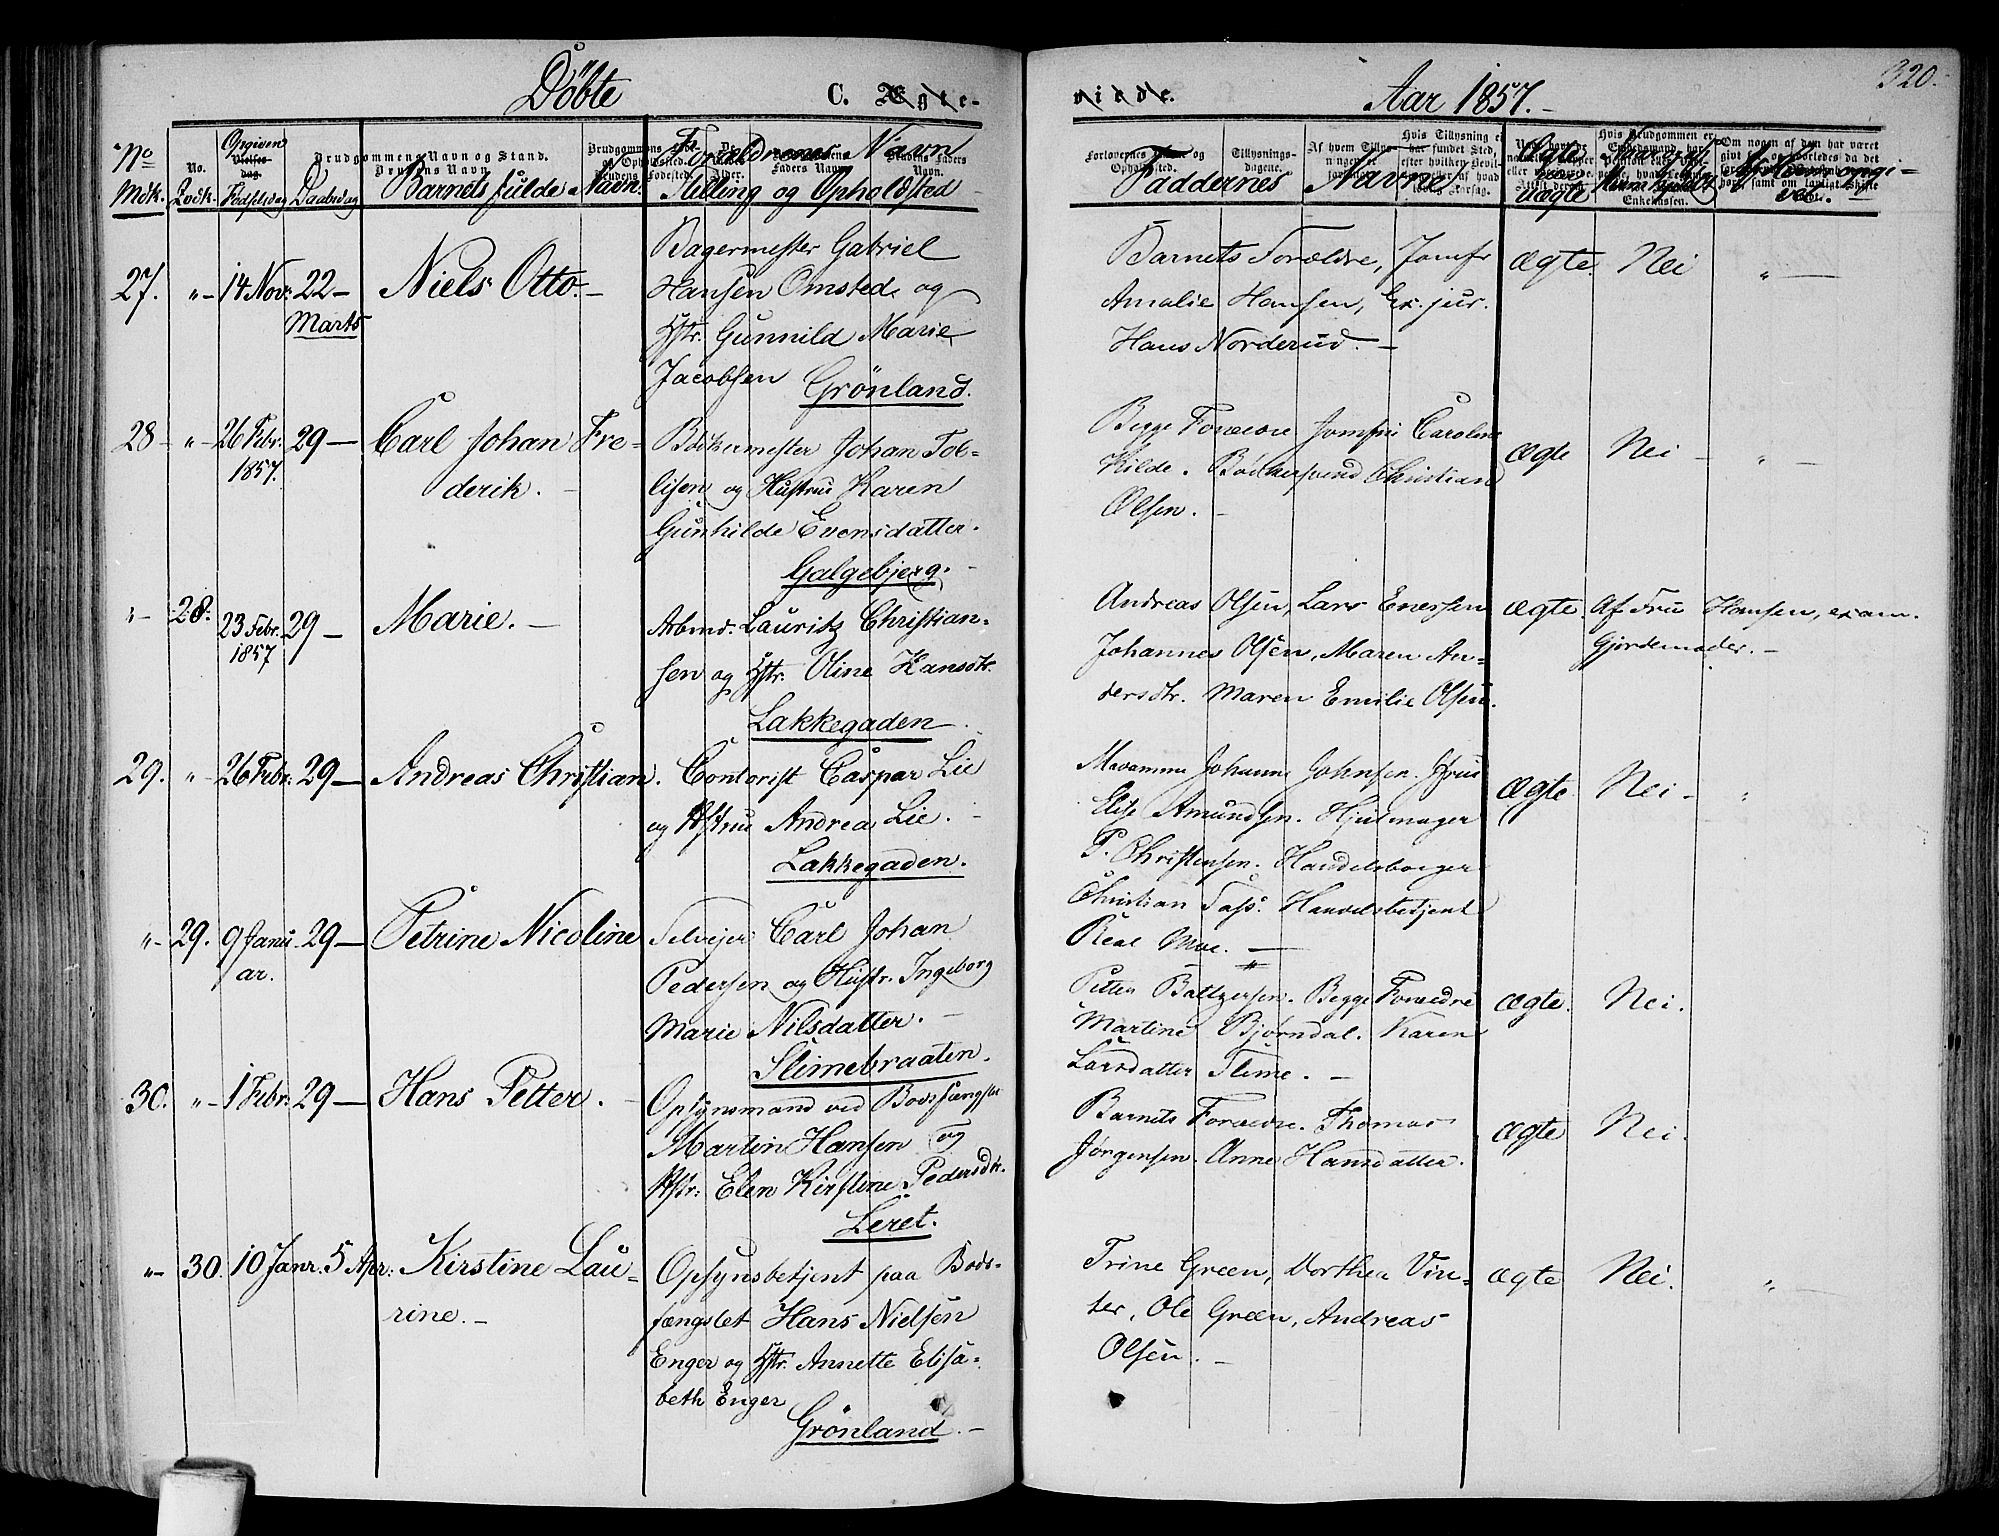 Döbte C. Ægte- viede. Aar 1857.- 320.
No Mdk. No. Qvdk. Opgiven Vielses dag. Fødselsdag Daabsdag Brudgommens Navn og Stand. Bruden Navn. Barnets fulde Navn Forældrenes Navn Stilling og Opholdssted Faddernes Navne Ægte eller uægte Af hvem opgivet.
Bagermester Gabriel
27. "- 14 Nov: 22 - Niels Otto. - Hansen Omsted og
Marts Hstr. Gunnild Marie
Jacobsen Grönland.
Barnets Forældre, Jomfr
Amalie Hansen, Ex. jur.
Hans Norderud. -
ægte. Nei "-
28 - "- 26 Febr. 29 - Carl Johan Fre-
1857. derik. -
Bødkermester Johan Tol-
lisen og Hustru Karen
Gunhilde Evensdatter.
Galgebjerg. -
Begge Forældre Jomfru Caroline
Kilde. Bødkersvend Christian
Olsen. -
ægte Nei - "-
"- 28. 23 Febr. 29 - Marie. -
1857
Arbmd. Lauritz Christian-
sen og Hstr. Oline Hansdtr.
Lakkegaden.
Andreas Olsen, Lars Enersen
Johannes Olsen, Maren An-
dersdtr. Maren Emilie Olsen.
ægte. Af Fru Hansen, exam.
Gjordemoder. -
29. "- 26 Febr. 29 - Andreas Christian.
Contorist Caspar Lie
og Hstru Andrea Lie. -
Lakkegaden.
Madamme Johanne Johnsen. Hfru
Elise Amundsen. Hjulmager
P. Christensen. Handelsborger
Christian Handelsbetjent
Moe. -
ægte. Nei - "
"- 29. 9 Janu- 29 - Petrine Nicoline
ar.
Selvejer Carl Johan
Pedersen og Hustr. Ingeborg
Marie Nilsdatter. -
Slimebraaten.
Petter Baltzersen. Begge Forældre
Martine Bjørndal. Karen
Larsdatter Slime. -
ægte. Nei.
30. "- 1 Febr: 29 - Hans Petter. -
Opsynsmand ved Bodsfængslet
Martin Hansen og
Hstr: Elen Kirstine Pedersdtr.
Leret.
Barnets Forældre. Thomas
Jørgensen. Anne Hansdatter.
ægte Nei.
"- 30. 10 Janr. 5 Apr: Kirstine Lau-
rine. -
Opsynsbetjent paa Bods-
fængslet Hans Nielsen
Enger og Hstr. Annette Elisa-
beth Enger
Grönland. -
Trine Green, Dorthea Vin-
ter, Ole Green, Andreas
Olsen. -
ægte Nei. "-